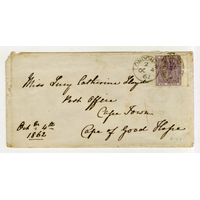 Miss Lucy Catherine Lloyd
Post Office
Cape Town
Cape of Good Hope
Oct br 4th
1862